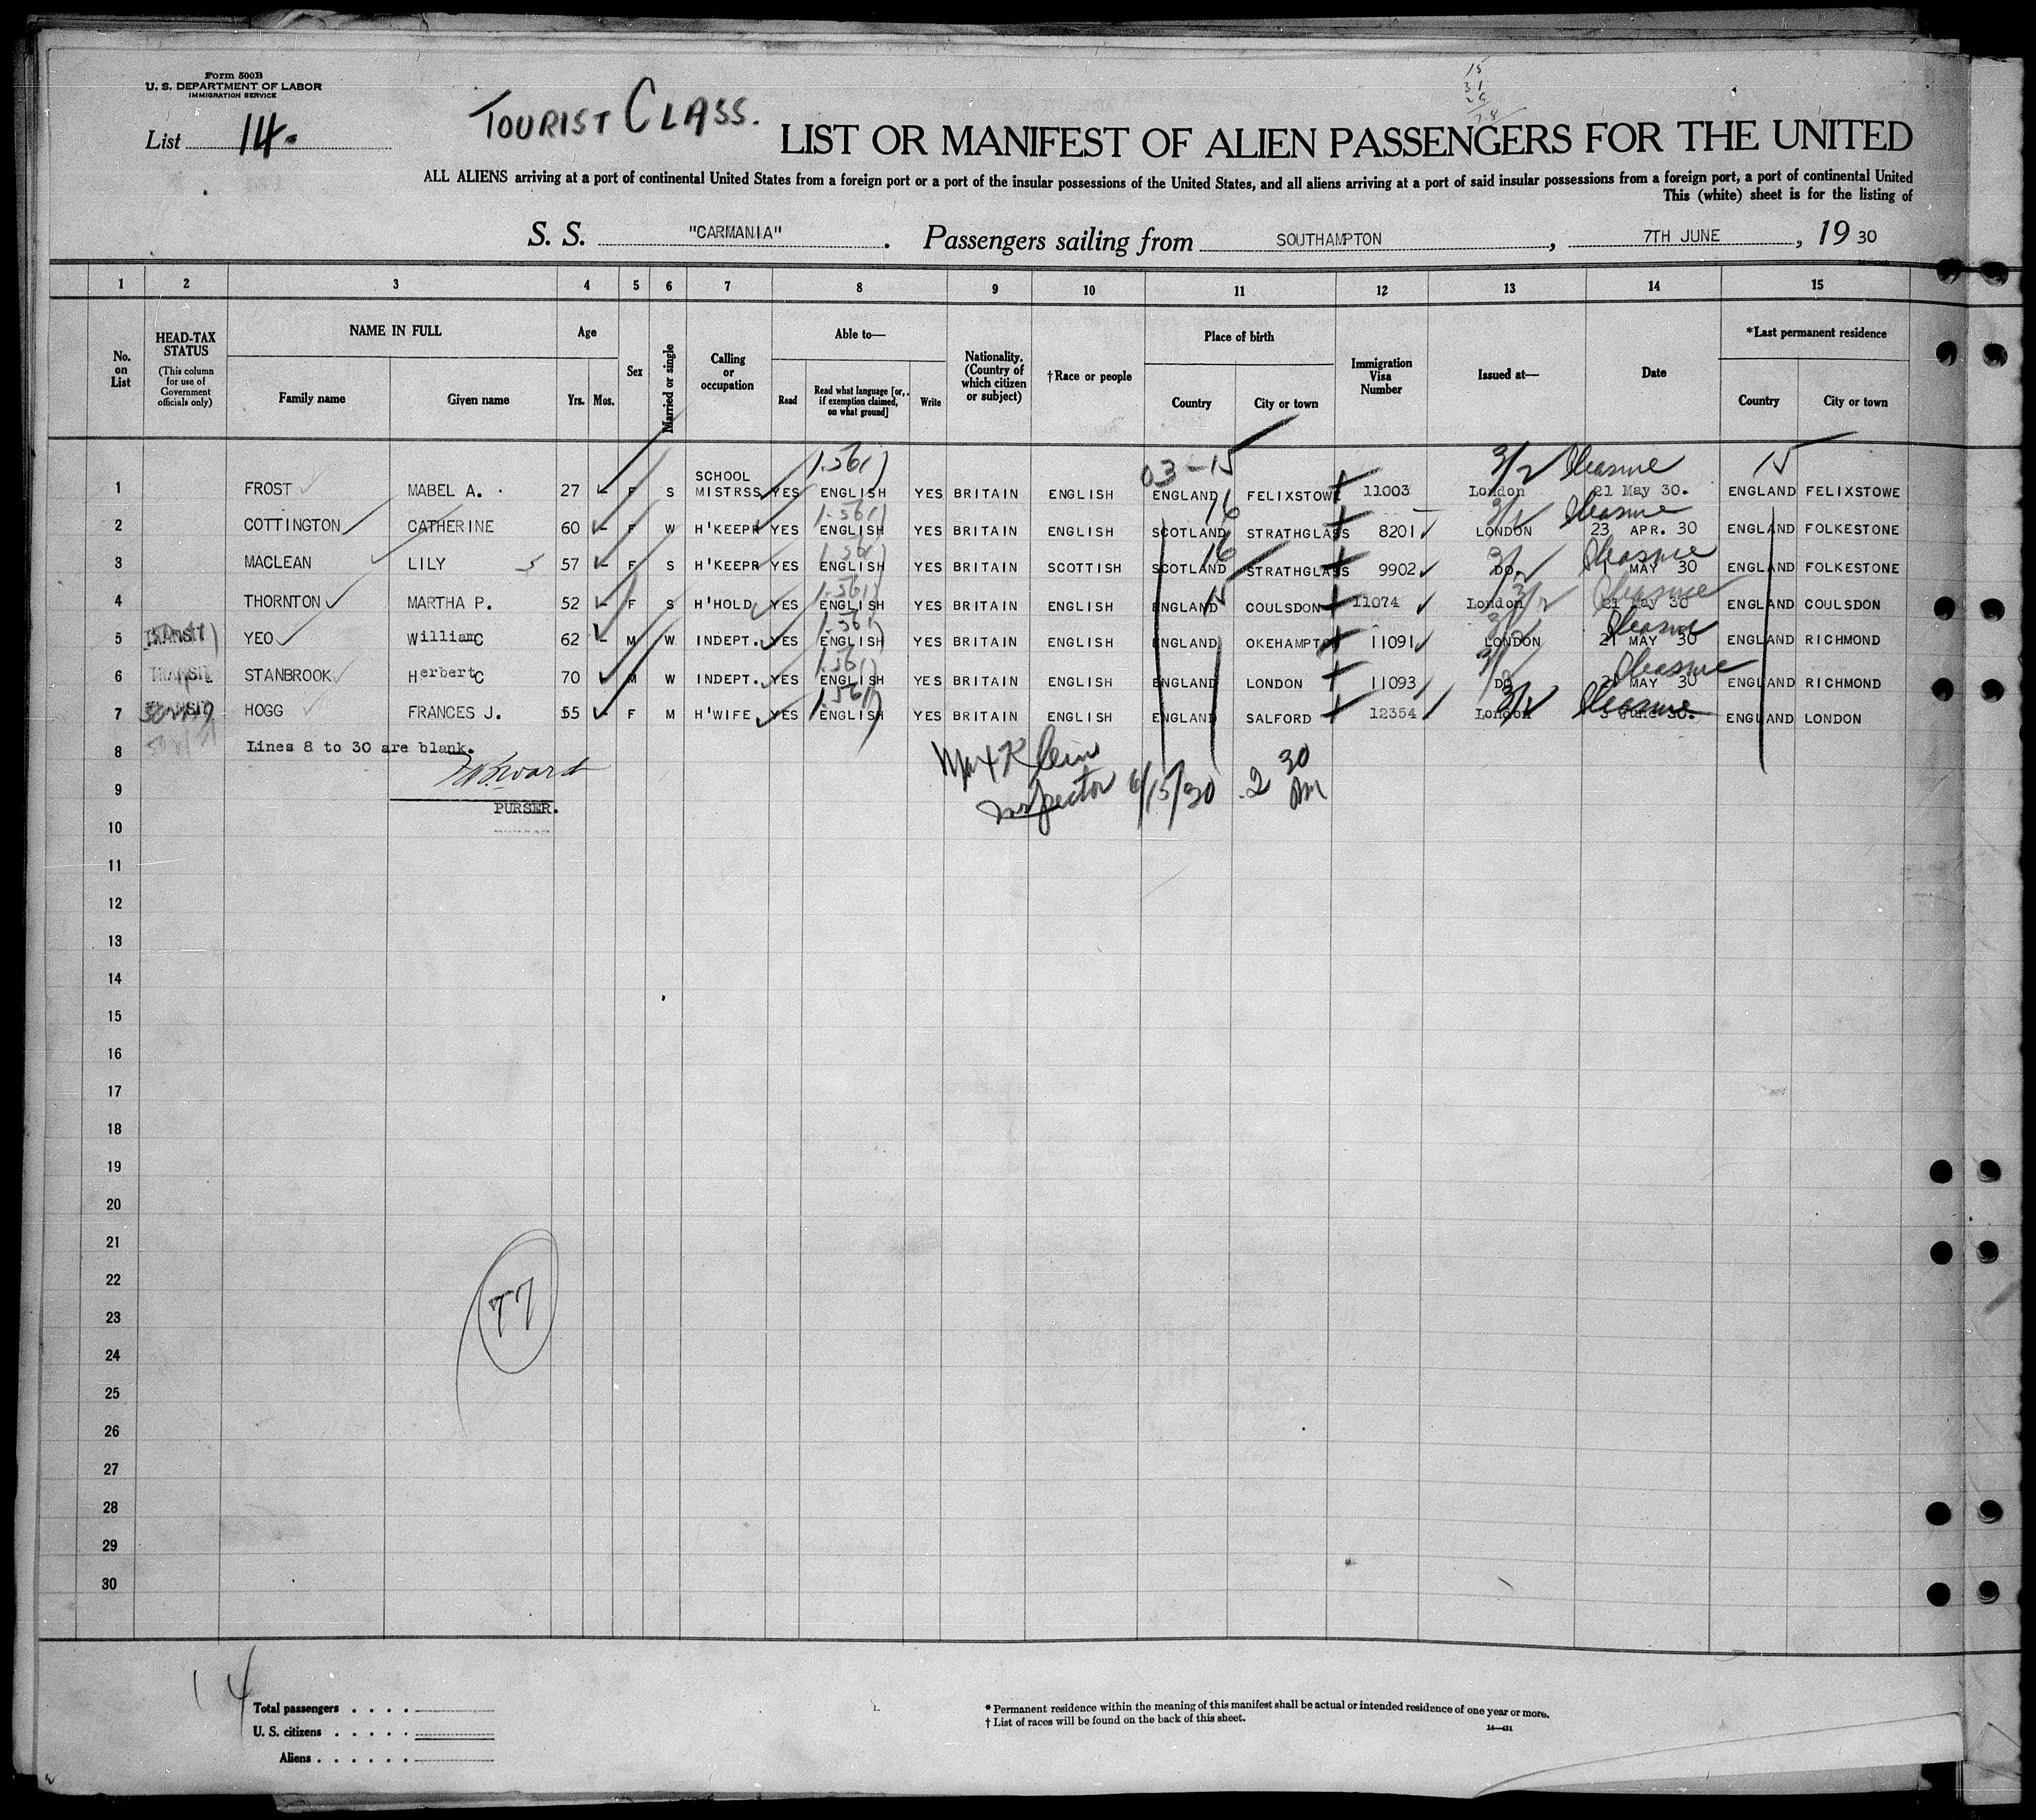 Form 500B
U. S. DEPARTMENT OF LABOR
IMMIGRATION SERVICE
List 14.
TOURIST CLASS.
15
31
LIST OR MANIFEST OF ALIEN PASSENGERS FOR THE UNITED
ALL ALIENS arriving at a port of continental United States from a foreign port or a port of the insular possessions of the United States, and all aliens arriving at a port of said insular possessions from a foreign port, a port of continental United
This (white) sheet is for the listing of
S. S. "CARMANIA" . Passengers sailing from SOUTHAMPTON , 7TH JUNE , 19 30
1 2 3 4 5 6 7 8 9 10 11 12 13 14 15
No. on List
HEAD-TAX STATUS (This column for use of Government officials only)
NAME IN FULL
Family name Given name
Age
Yrs. Mos.
Sex
Married or single
Calling or occupation
Able to—
Read Read what language [or, if exemption claimed, on what ground] Write
Nationality. (Country of which citizen or subject)
†Race or people
Place of birth
Country City or town
Immigration Visa Number
Issued at—
Date
*Last permanent residence
Country City or town
03-15 3/2 Pleasure 15
1 FROST MABEL A. 27 F S SCHOOL MISTRSS YES ENGLISH YES BRITAIN ENGLISH ENGLAND FELIXSTOWE 11003 London 21 May 30. ENGLAND FELIXSTOWE
16 Pleasure
2 COTTINGTON CATHERINE 60 F W H'KEEPR YES ENGLISH YES BRITAIN ENGLISH SCOTLAND STRATHGLASS 8201 LONDON 23 APR. 30 ENGLAND FOLKESTONE
16 Pleasure
3 MACLEAN LILY 57 F S H'KEEPR YES ENGLISH YES BRITAIN SCOTTISH SCOTLAND STRATHGLASS 9902 DO. 1 MAY 30 ENGLAND FOLKESTONE
15 3/2 Pleasure
4 THORNTON MARTHA P. 52 F S H'HOLD YES ENGLISH YES BRITAIN ENGLISH ENGLAND COULSDON 11074 London 21 May 30 ENGLAND COULSDON
Pleasure
5 TRANSIT YEO William C 62 M W INDEPT. YES ENGLISH YES BRITAIN ENGLISH ENGLAND OKEHAMPTON 11091 LONDON 21 MAY 30 ENGLAND RICHMOND
Pleasure
6 TRANSIT STANBROOK Herbert C 70 M W INDEPT. YES ENGLISH YES BRITAIN ENGLISH ENGLAND LONDON 11093 DO 21 MAY 30 ENGLAND RICHMOND
3/2 Pleasure
7 HOGG FRANCES J. 55 F M H'WIFE YES ENGLISH YES BRITAIN ENGLISH ENGLAND SALFORD 12354 London 3 June 30. ENGLAND LONDON
8 Lines 8 to 30 are blank.
Max Klein
Inspector 6/15/30 2 30 PM
9
PURSER.
10
11
12
13
14
15
16
17
18
19
20
21
22
23
24
25
26
27
28
29
30
77
14
Total passengers . . . .
U. S. citizens . . . . .
Aliens . . . . . .
* Permanent residence within the meaning of this manifest shall be actual or intended residence of one year or more.
† List of races will be found on the back of this sheet.
14—421